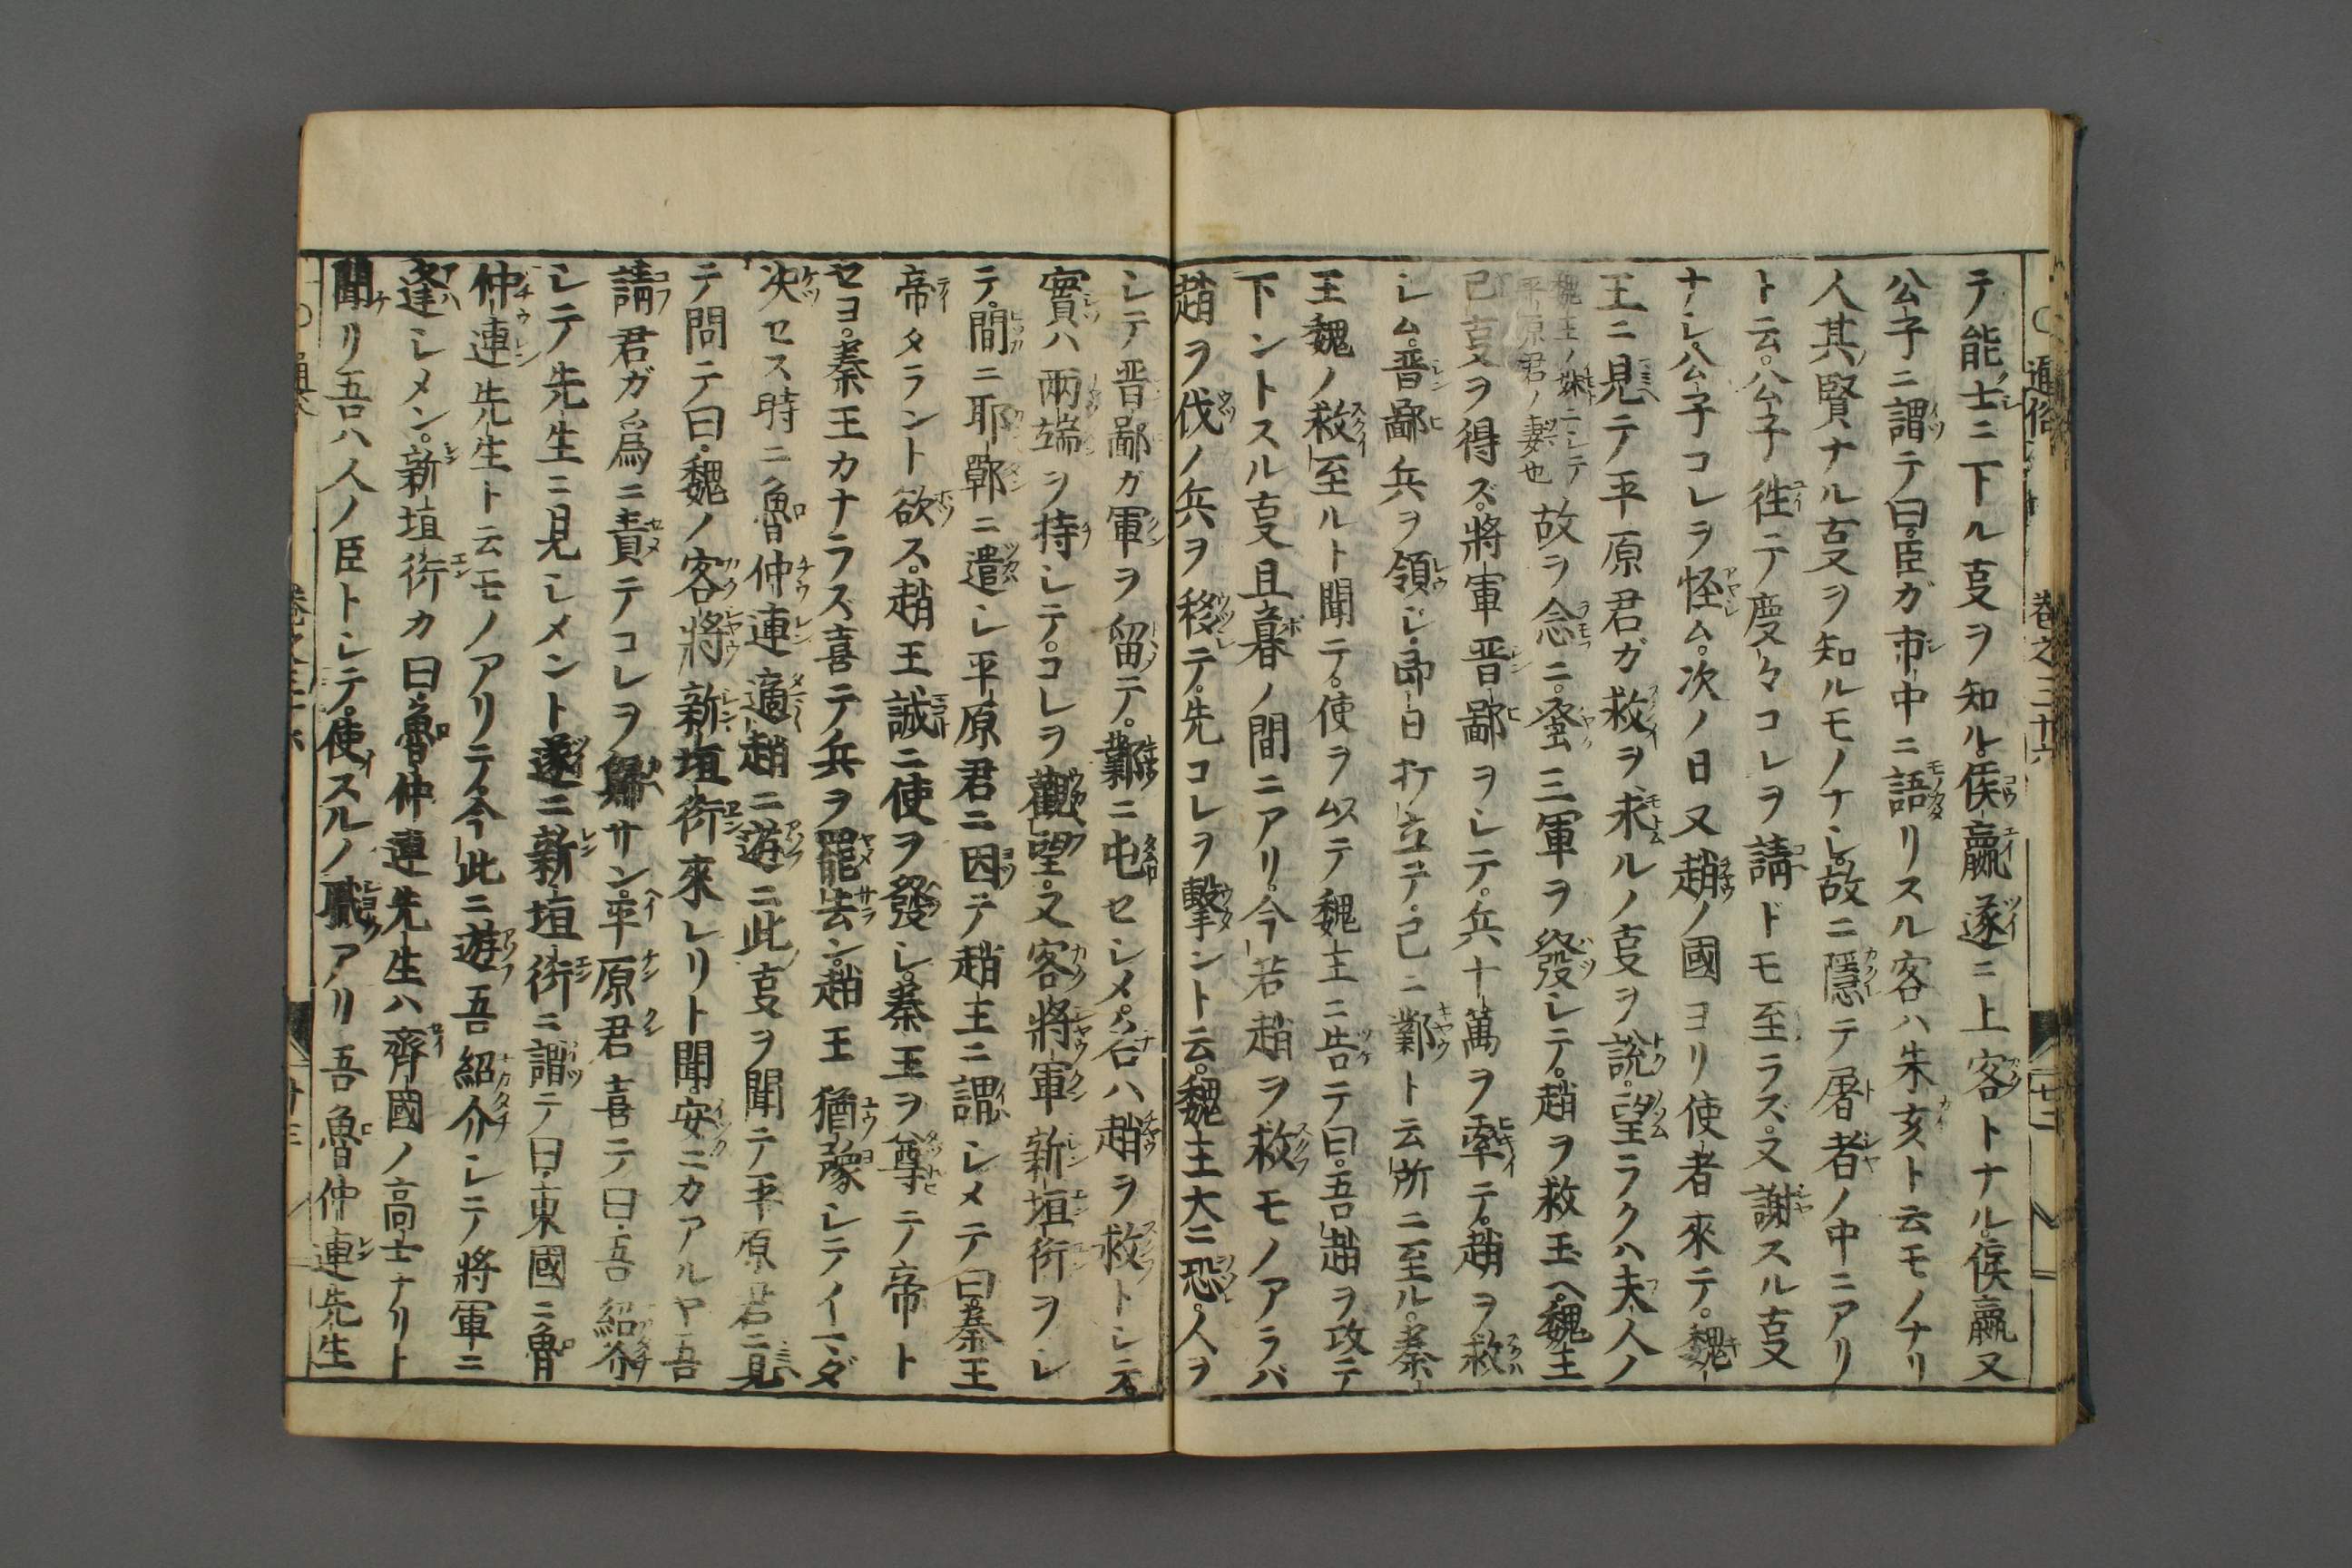 通俗 巻之三十六
テ能士ニ下ル㕝ヲ知ル。侯嬴遂ニ上客トナル。侯嬴又
公子ニ謂テ曰。臣ガ市中ニ語リスル客ハ朱亥ト云モノナリ
人其賢ナル㕝ヲ知ルモノナシ。故ニ隱テ屠者ノ中ニアリ
ト云。公子徃テ度々コレヲ請ドモ至ラズ。又謝スル㕝
ナシ。公子コレヲ怪ム。次ノ日又趙ノ國ヨリ使者來テ。魏
王ニ見テ平原君ガ救ヲ求ルノ㕝ヲ説。望ラクハ夫人ノ
魏王ノ姊ニシテ平原君ノ妻也故ヲ念ニ。蚤三軍ヲ發シテ。趙ヲ救玉ヘ。魏王
已㕝ヲ得ズ。將軍晋鄙ヲシテ。兵十萬ヲ牽テ。趙ヲ救
シム。晋鄙兵ヲ領シ。即日打立テ。已ニ鄴ト云所ニ至ル。秦
王魏ノ救至ルト聞テ。使ヲ以テ魏王ニ告テ曰。吾趙ヲ攻テ
下ントスル㕝且暮ノ間ニアリ。今若趙ヲ救モノアラバ
趙ヲ伐ノ兵ヲ移テ。先コレヲ擊ント云。魏王大ニ恐。人ヲ
シテ晋鄙ガ軍ヲ留テ。鄴ニ屯セシメ。名ハ趙ヲ救トシテ
實ハ兩端ヲ持シテ。コレヲ觀望。又客將軍新垣衍ヲシ
テ。間ニ耶鄲ニ遣シ平原君ニ因テ趙王ニ謂シメテ曰。秦王
帝タラント欲ス。趙王誠ニ使ヲ發シ。秦王ヲ尊テ帝ト
セヨ。秦王カナラズ喜テ兵ヲ罷去ン。趙王猶豫シテイマダ
决セス時ニ魯仲連適趙ニ遊ニ此㕝ヲ聞テ平原君ニ見
テ問テ曰。魏ノ客將新垣衍來レリト聞。安ニカアルヤ吾
請君ガ爲ニ責テコレヲ歸サン。平原君喜テ曰。吾紹介
シテ先生ニ見シメント遂ニ新垣衍ニ謂テ曰。東國ニ魯
仲連先生ト云モノアリテ。今此ニ遊吾紹介シテ將軍ニ
逢シメン。新垣衍カ曰。魯仲連先生ハ齊國ノ高士ナリト
聞リ吾ハ人ノ臣トシテ。使スルノ職アリ吾魯仲連先生